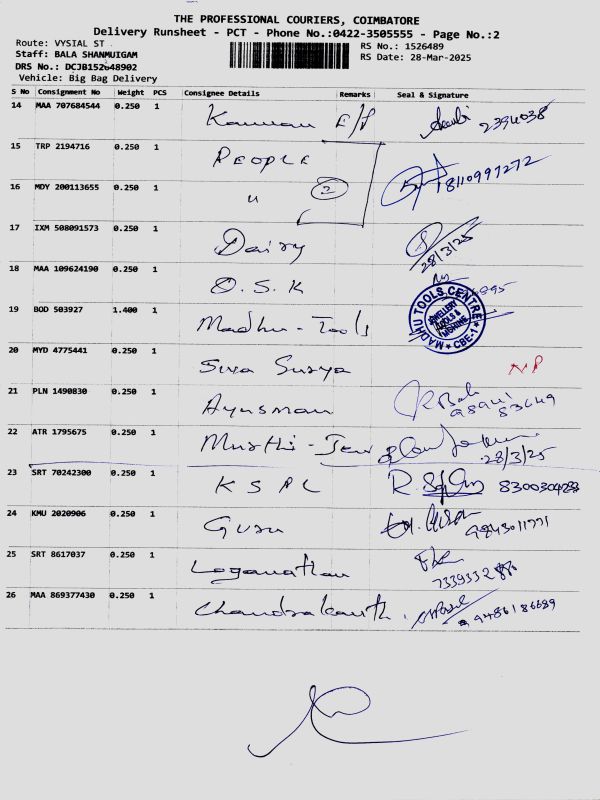 THE PROFESSIONAL COURIERS, COIMBATORE
Delivery Runsheet - PCT - Phone No.:0422-3505555 - Page No.:2
Route: VYSIAL ST RS No.: 1526489
Staff: BALA SHANMUIGAM RS Date: 28-Mar-2025
DRS No.: DCJB152648902
Vehicle: Big Bag Delivery
S No Consignment No Weight PCS Consignee Details Remarks Seal & Signature
14 MAA 707684544 0.250 1 Kannan E/P 2394038
15 TRP 2194716 0.250 1 PEOPLE
16 MDY 200113655 0.250 1 " 2 8110997272
17 IXM 508091573 0.250 1 Dairy 28/3/25
18 MAA 109624190 0.250 1 O.S.K
19 BOD 503927 1.400 1 Madhu-Tools MADHU TOOLS CENTRE JEWELLERY TOOLS & MACHINE CBE-1
20 MYD 4775441 0.250 1 Siva Surya NP
21 PLN 1490830 0.250 1 Ayusman
22 ATR 1795675 0.250 1 Murthi-Jew 28/3/25
23 SRT 70242300 0.250 1 KSPL
24 KMU 2020906 0.250 1 Guru 9843011771
25 SRT 8617037 0.250 1 Loganathan
26 MAA 869377430 0.250 1 Chandrakanth 9486186689